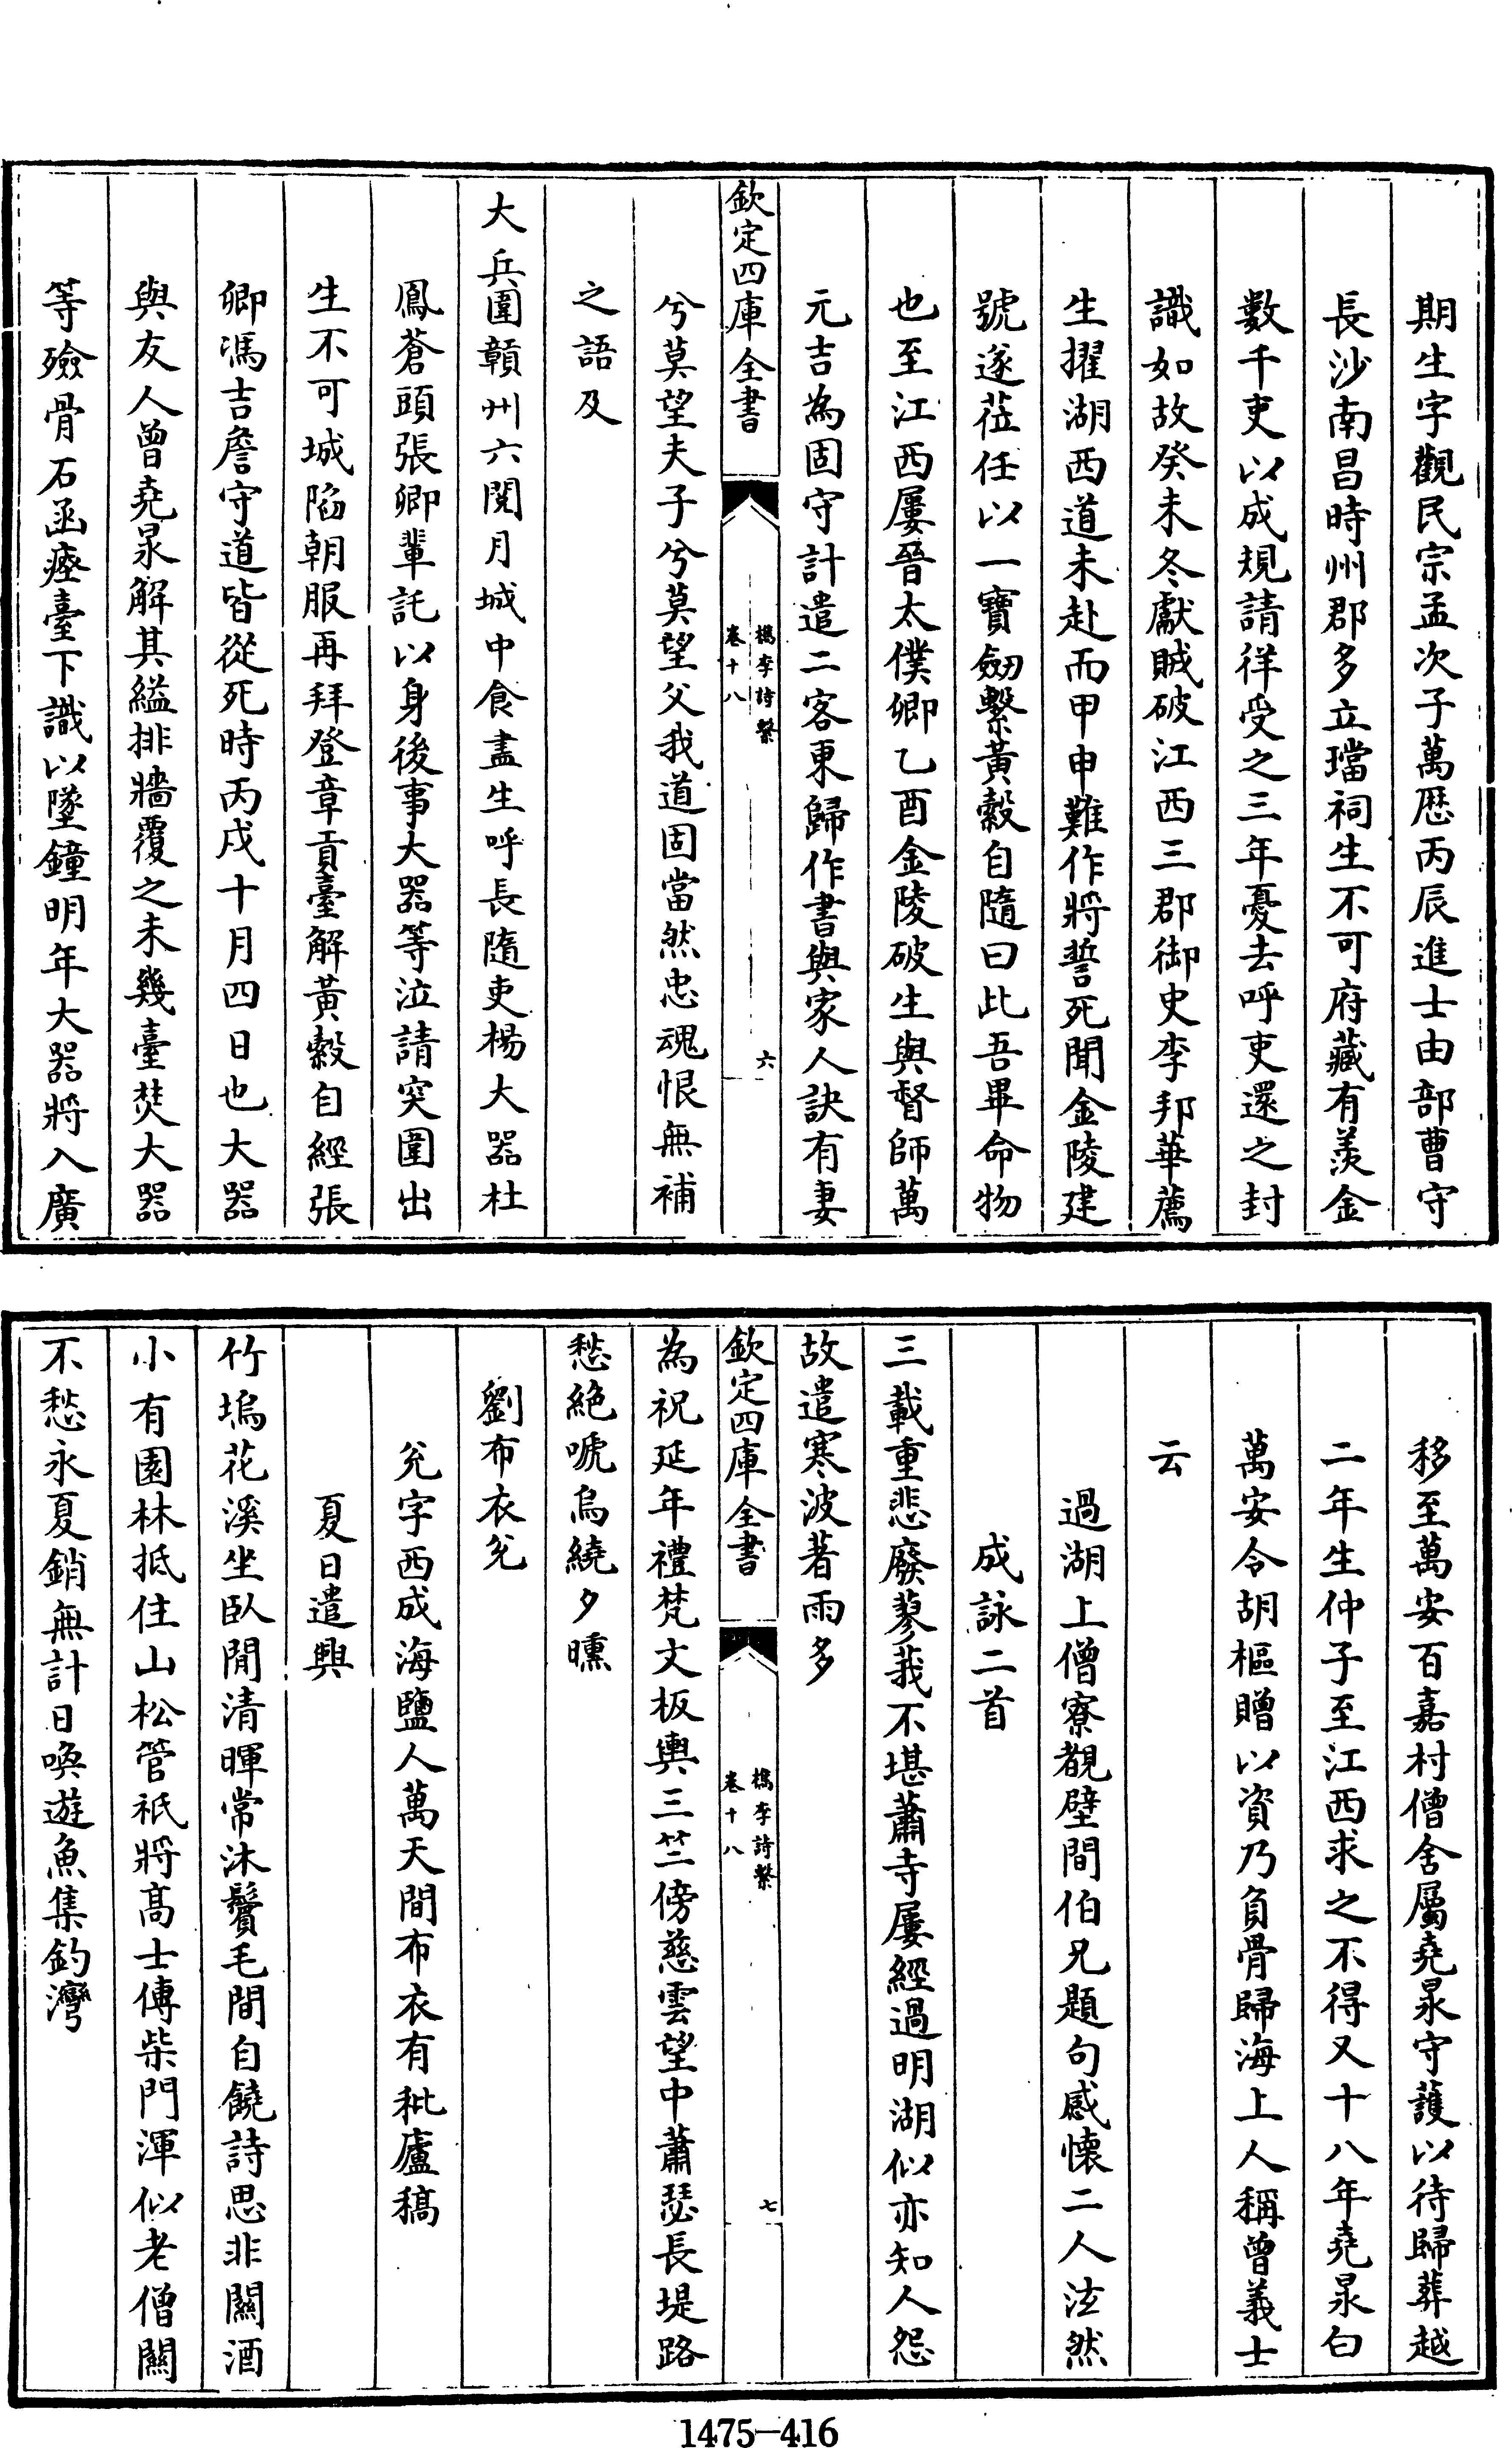 期生字觀民宗孟次子萬厯丙辰進士由部曹守
長沙南昌時州郡多立璫祠生不可府藏有羨金
數千吏以成規請徉受之三年憂去呼吏還之封
識如故癸未冬獻賊破江西三郡御史李邦華薦
生擢湖西道未赴而甲申難作將誓死聞金陵建
號遂蒞任以一寶劒繫黃縠自隨曰此吾畢命物
也至江西屢晉太僕卿乙酉金陵破生與督師萬
元吉為固守計遣二客東歸作書與家人訣有妻
欽定四庫全書
檇李詩繫
卷十八
六
兮莫望夫子兮莫望父我道固當然忠魂恨無補
之語及
大兵圍贛州六閱月城中食盡生呼長隨吏楊大器杜
鳳蒼頭張卿輩託以身後事大器等泣請突圍出
生不可城陷朝服再拜登章貢臺解黃縠自經張
卿馮吉詹守道皆從死時丙戌十月四日也大器
與友人曾堯泉解其縊排牆覆之未幾臺焚大器
等殮骨石函瘞臺下識以墜鐘明年大器將入廣
移至萬安百嘉村僧舍屬堯泉守護以待歸葬越
二年生仲子至江西求之不得又十八年堯泉白
萬安令胡樞贈以資乃負骨歸海上人稱曾義士
云
過湖上僧寮覩壁間伯兄題句感懷二人泫然
成詠二首
三載重悲廢蓼莪不堪蕭寺屢經過明湖似亦知人怨
故遣寒波著雨多
欽定四庫全書
檇李詩繫
卷十八
七
為祝延年禮梵文板輿三竺傍慈雲望中蕭瑟長堤路
愁絶唬烏繞夕曛
劉布衣兊
兊字西成海鹽人萬天間布衣有秕廬稿
夏日遣興
竹塢花溪坐臥閒清暉常沐鬢毛間自饒詩思非關酒
小有園林抵住山松管祇將髙士傳柴門渾似老僧關
不愁永夏銷無計日喚遊魚集釣灣
1475—416